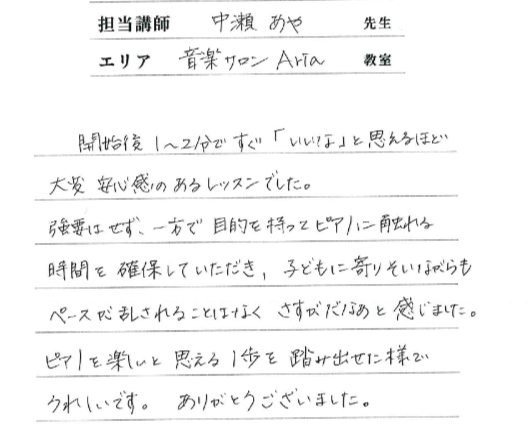 担当講師 中瀬 あや 先生
エリア 音楽サロン Aria 教室
開始後 1〜2分で すぐ「いいな」と思えるほど
大変 安心感のあるレッスンでした。
強要はせず、一方で 目的を持って ピアノに触れる
時間を 確保していただき, 子どもに寄りそいながらも
ペースが乱されることはなく さすがだなあと 感じました。
ピアノを楽しいと 思える 1歩を 踏み出せた様で
うれしいです。 ありがとうございました。